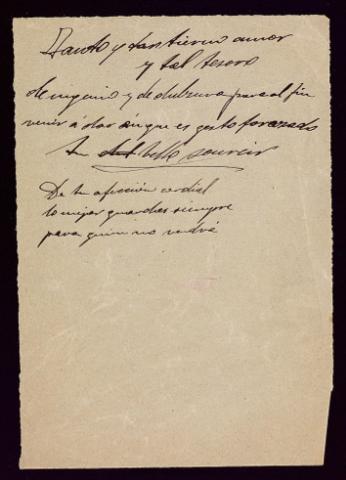 Tanto y tan tierno amor
y tal tesoro
de ingenio y de dulzura para al fin
venir á dar en que es gesto forzado
tu bello sonreir
De tu aficción cordial
lo mejor guardas siempre
para quien no vendrá